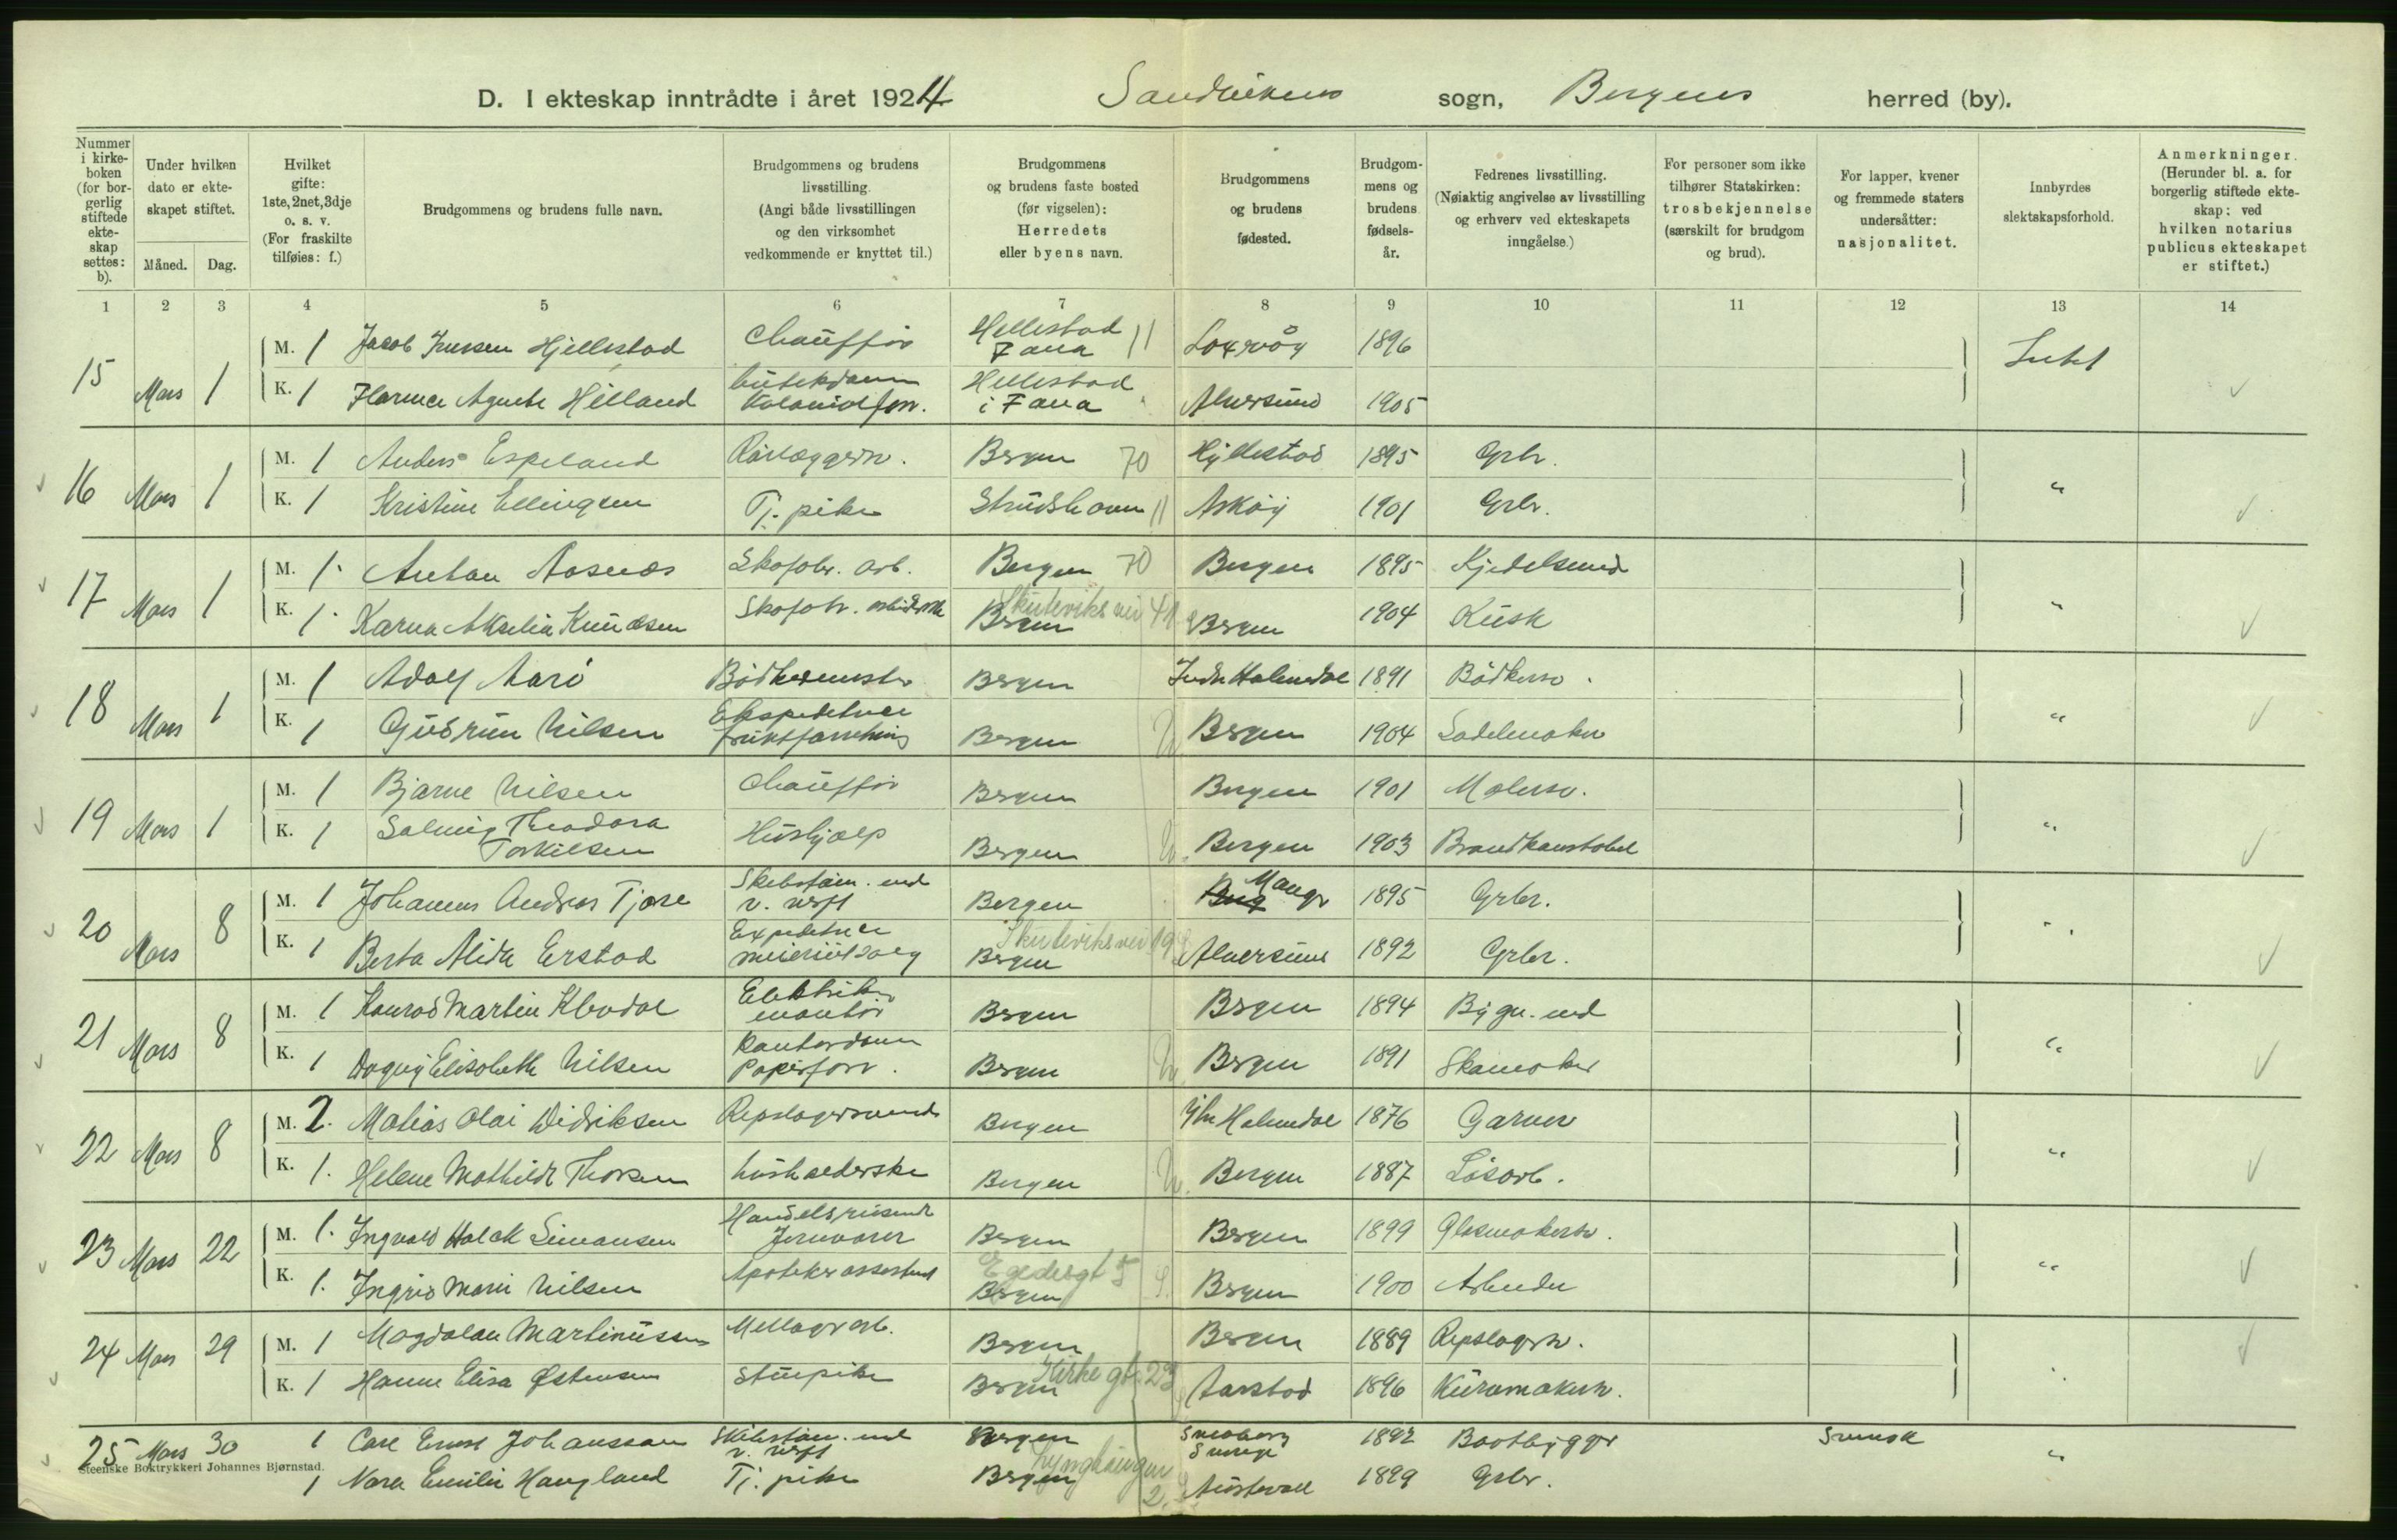 D. I ekteskap inntrådte i året 1924 Sandvikens sogn, Bergens herred (by).
Nummer i kirkeboken (for borgerlig stiftede ekteskap settes: b).
Under hvilken dato er ekteskapet stiftet.
Måned. Dag.
Hvilket gifte: 1ste, 2net, 3dje o. s. v. (For fraskilte tilføies: f.)
Brudgommens og brudens fulle navn.
Brudgommens og brudens livsstilling. (Angi både livsstillingen og den virksomhet vedkommende er knyttet til.)
Brudgommens og brudens faste bosted (før vigselen): Herredets eller byens navn.
Brudgommens og brudens fødested.
Brudgommens og brudens fødselsår.
Fedrenes livsstilling. (Nøiaktig angivelse av livsstilling og erhverv ved ekteskapets inngåelse.)
For personer som ikke tilhører Statskirken: trosbekjennelse (særskilt for brudgom og brud).
For lapper, kvener og fremmede staters undersåtter: nasjonalitet.
Innbyrdes slektskapsforhold.
Anmerkninger. (Herunder bl. a. for borgerlig stiftede ekteskap; ved hvilken notarius publicus ekteskapet er stiftet.)
1 2 3 4 5 6 7 8 9 10 11 12 13 14
15 Mars 1 M. 1 Jacob Hjellestad Chauffør Hellestad Fana 11 1896 Intet
K. 1 Agnete Helland Hellestad i Fana Alversund 1905
16 Mars 1 M. 1 Anders Espeland Rørlæggersv. Bergen 70 Hyllestad 1895 Grbr. "
K. 1 Kristine Ellingsen Tj. pike Strudshavn 11 Askøy 1901 Grbr.
17 Mars 1 M. 1. Anton Aasnæs Skofabr. arb. Bergen 70 Bergen 1895 Kjedelsmed "
K. 1. Karna Akselia Knudsen Skofabr. arbeiderske Skuteviksvei 41 Bergen Bergen 1904 Kusk
18 Mars 1 M. 1 Adolf Aarø Bødkermester Bergen Indre Holmedal 1891 Bødkersv. "
K. 1 Gudrun Nilsen Ekspeditrice fruktforretning Bergen Bergen 1904 Sadelmaker
19 Mars 1 M. 1 Bjarne Nilsen Chauffør Bergen Bergen 1901 Malersv. "
K. 1 Solveig Theodora Torkilsen Hushjælp Bergen Bergen 1903 Brandkonstabel
20 Mars 8 M. 1 Johannes Andreas Tjore Skibstøm. med v. verft Bergen Manger 1895 Grbr. "
K. 1 Berta Alida Erstad Expeditrice meieriutsalg Skuteviksvei 19 Bergen Alversund 1892 Grbr.
21 Mars 8 M. 1 Konrad Martin Elektriker montør Bergen Bergen 1894 Bygn. "
K. 1 Dagny Elisabeth Nilsen Kontordame Papirforr. Bergen Bergen 1891 Skomaker
22 Mars 8 M. 2. Matias Olai Didriksen Repslagersvend Bergen Ytre Holmedal 1876 Garver "
K. 1. Helene Mathilde Thorsen husholderske Bergen Bergen 1887 Løsarb.
23 Mars 22 M. 1. Ingvald Simonsen Handelsreisende Jernvarer Bergen Bergen 1899 Glasmakersv. "
K. 1. Ingrid Marie Nilsen Apotekerassistent Egedesgt 5 Bergen Bergen 1900 Arbeider
24 Mars 29 M. 1 Magdalon Martinussen arb. Bergen Bergen 1889 Repslagersv.
K. 1 Hanne Elisa Østensen Stuepike Kirkegt. 23 Bergen Aarstad 1896 Kurvmakersv.
25 Mars 30 1 Carl Ernst Johansson Skibstøm. v. verft Bergen Sverige 1892 Baatbygger Svensk "
Steenske Boktrykkeri Johannes Bjørnstad.
1 Nora Emilie Haugland Tj. pike Bergen 2 Austevoll 1899 Grbr.